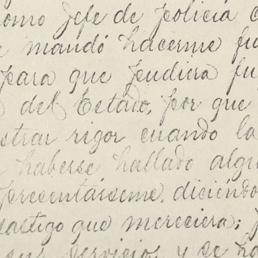 omo jefe de policía
e mandó hacerme fu
para que pudiera fu
del Estado, por que
strar rigor cuando la
haberse hallado algu
presentáiseme, diciendo
castigo que mereciera;
sus servicios, y se ha